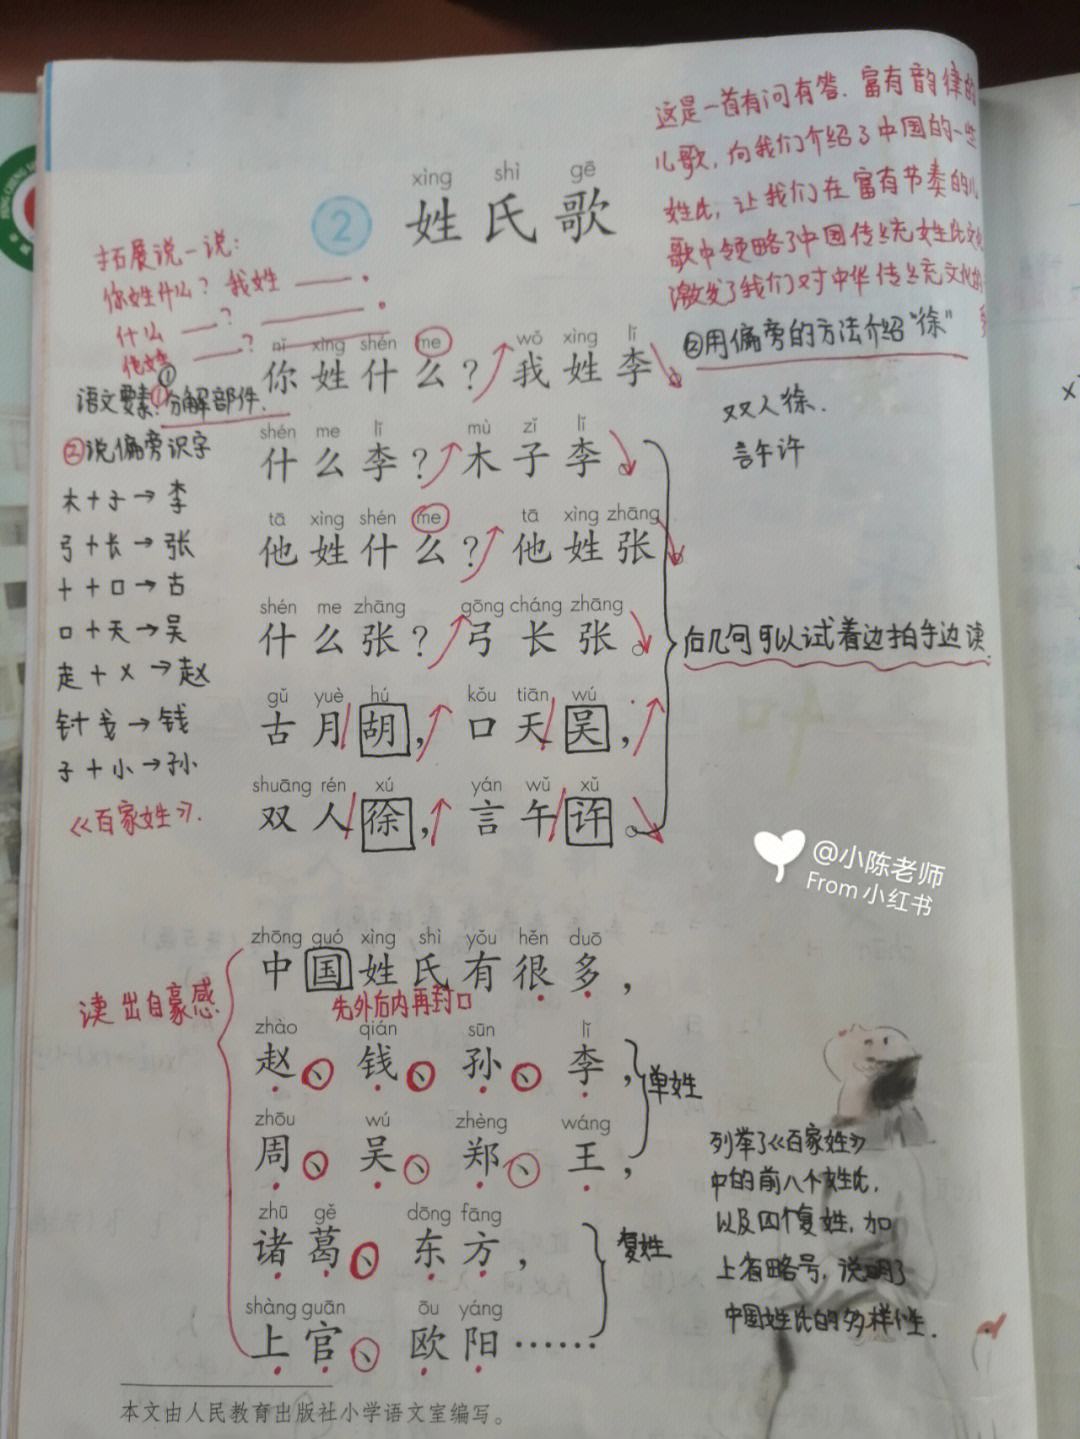 这是一首有问有答.富有韵律的
儿歌,向我们介绍了中国的一些
姓氏,让我们在富有节奏的儿
歌中领略了中国传统姓氏文化
激发了我们对中华传统文化的
xìng shì gē
② 姓氏歌
拓展说一说:
你姓什么?我姓____。
什么____?____。
他姓____?
②用偏旁的方法介绍“徐”
双人徐.
言午许
nǐ xìng shén me wǒ xìng lǐ
你姓什么?我姓李。
语文要素:①分解部件.
②说偏旁识字
木+子→李
弓+长→张
十+口→古
口+天→吴
走+㐅→赵
钅+戋→钱
子+小→孙
《百家姓》.
shén me lǐ mù zǐ lǐ
什么李?木子李。
tā xìng shén me tā xìng zhāng
他姓什么?他姓张。
shén me zhāng gōng cháng zhāng
什么张?弓长张。
gǔ yuè hú kǒu tiān wú
古月胡,口天吴,
shuāng rén xú yán wǔ xǔ
双人徐,言午许。
后几句可以试着边拍手边读.
@小陈老师
From 小红书
zhōng guó xìng shì yǒu hěn duō
中国姓氏有很多,
先外后内再封口
读出自豪感
zhào qián sūn lǐ
赵、钱、孙、李,
单姓
zhōu wú zhèng wáng
周、吴、郑、王,
zhū gě dōng fāng
诸葛、东方,
复姓
shàng guān ōu yáng
上官、欧阳……
列举了《百家姓》
中的前八个姓氏,
以及四个复姓,加
上省略号,说明了
中国姓氏的多样性.
本文由人民教育出版社小学语文室编写。